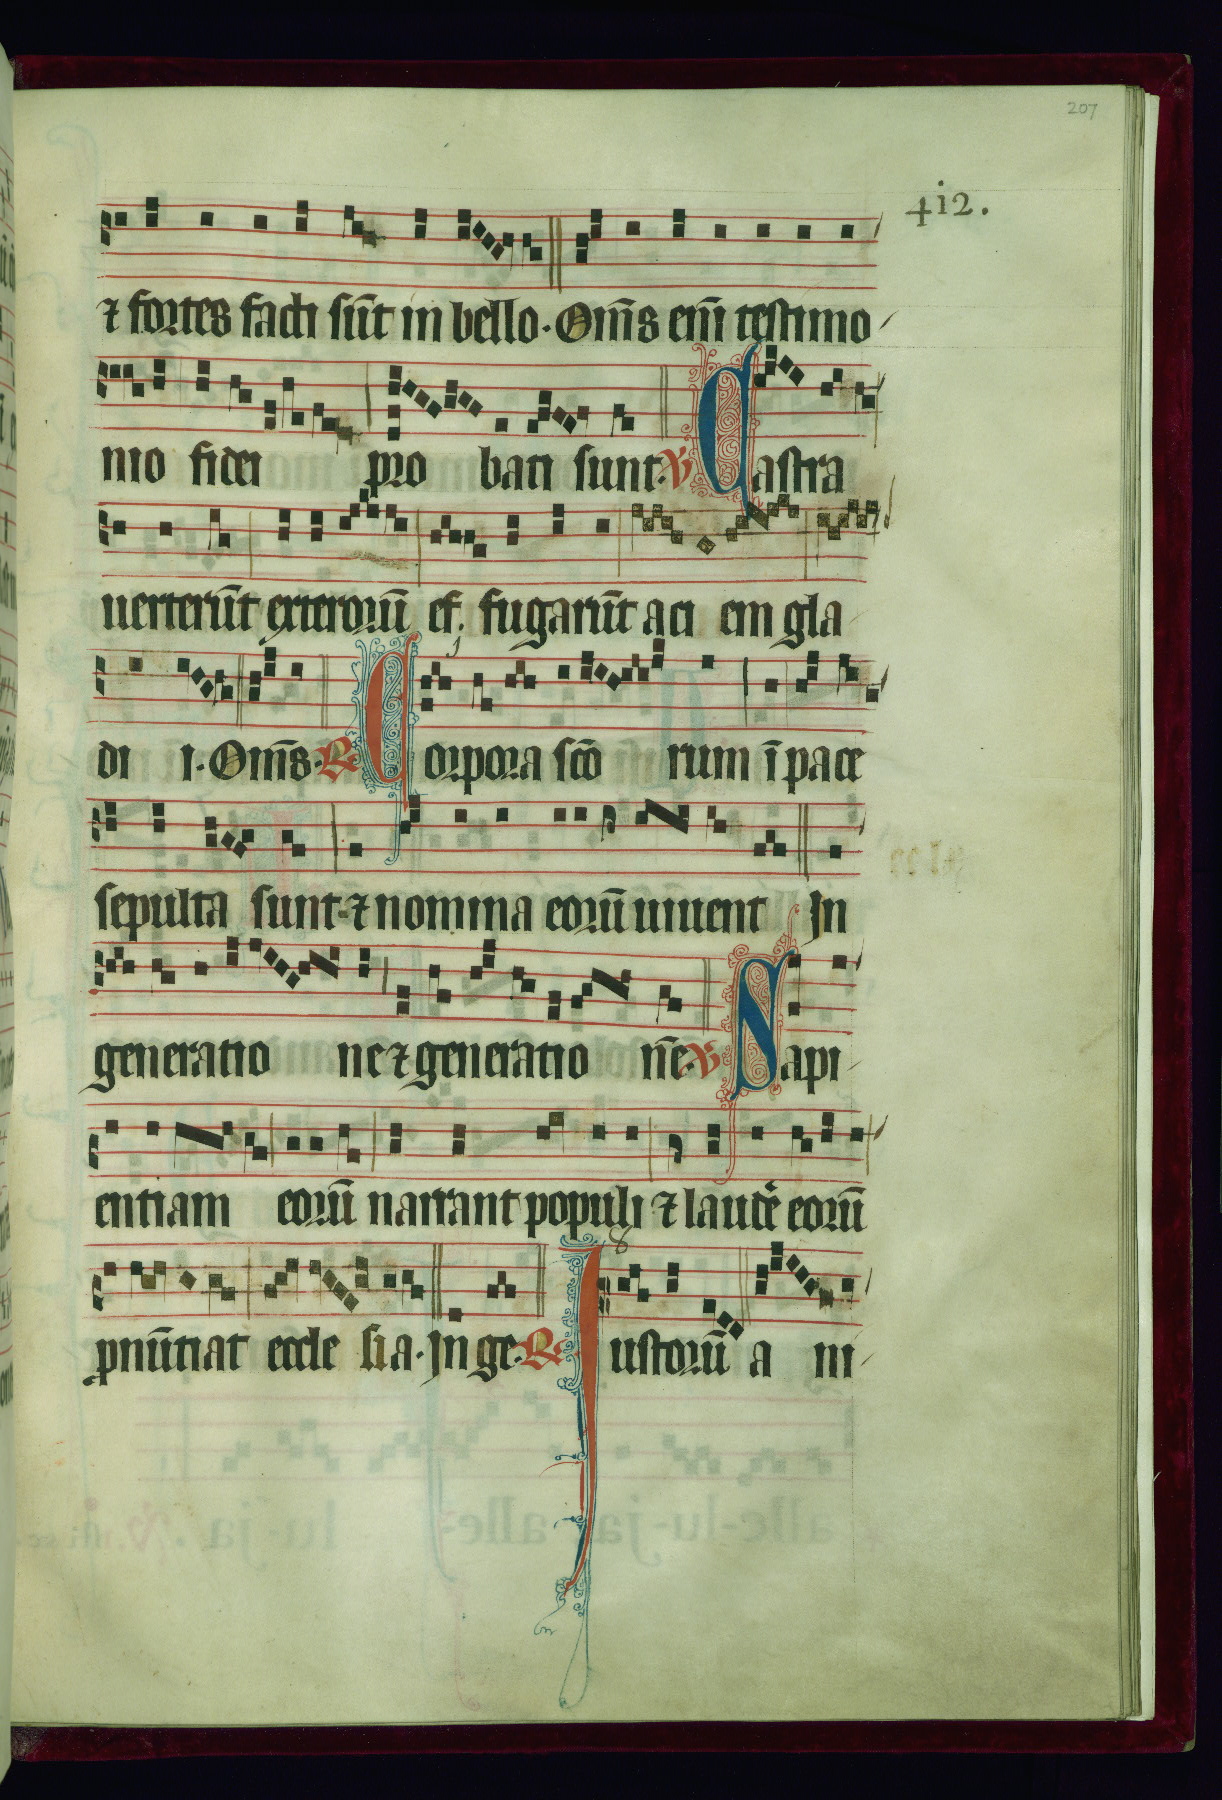 207
412.
⁊ fortes facti sūt in bello. Om̄s em̄ testimo
nio fidei pro bati sunt. ℣ Castra
uerterūt exterorū ef. fugarūt aci em gla
di i. Om̄s. ℟ Corpora scō rum ī pace
sepulta sunt. ⁊ nomina eorū uiuent In
generatio ne ⁊ generatio n̄e. ℣ Sapi
entiam eorū narrant populi ⁊ laudē eorū
ꝓnūtiat eccle sia. In ge. ℟ Iustorū a ni